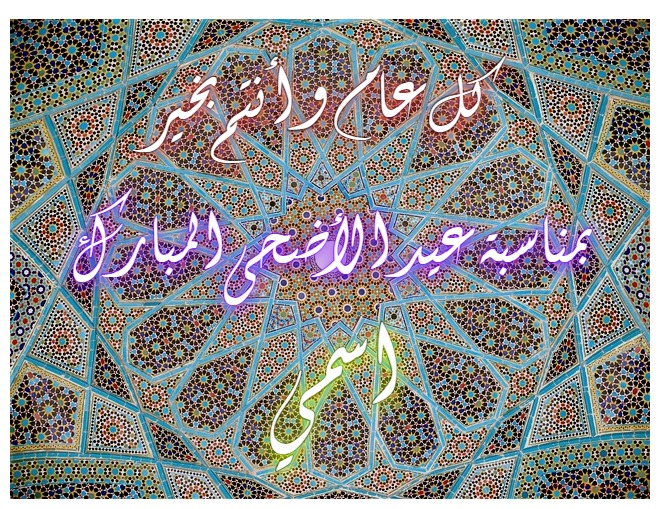 كل عام و أنتم بخير
بمناسبة عيد الأضحى المبارك
اسمي